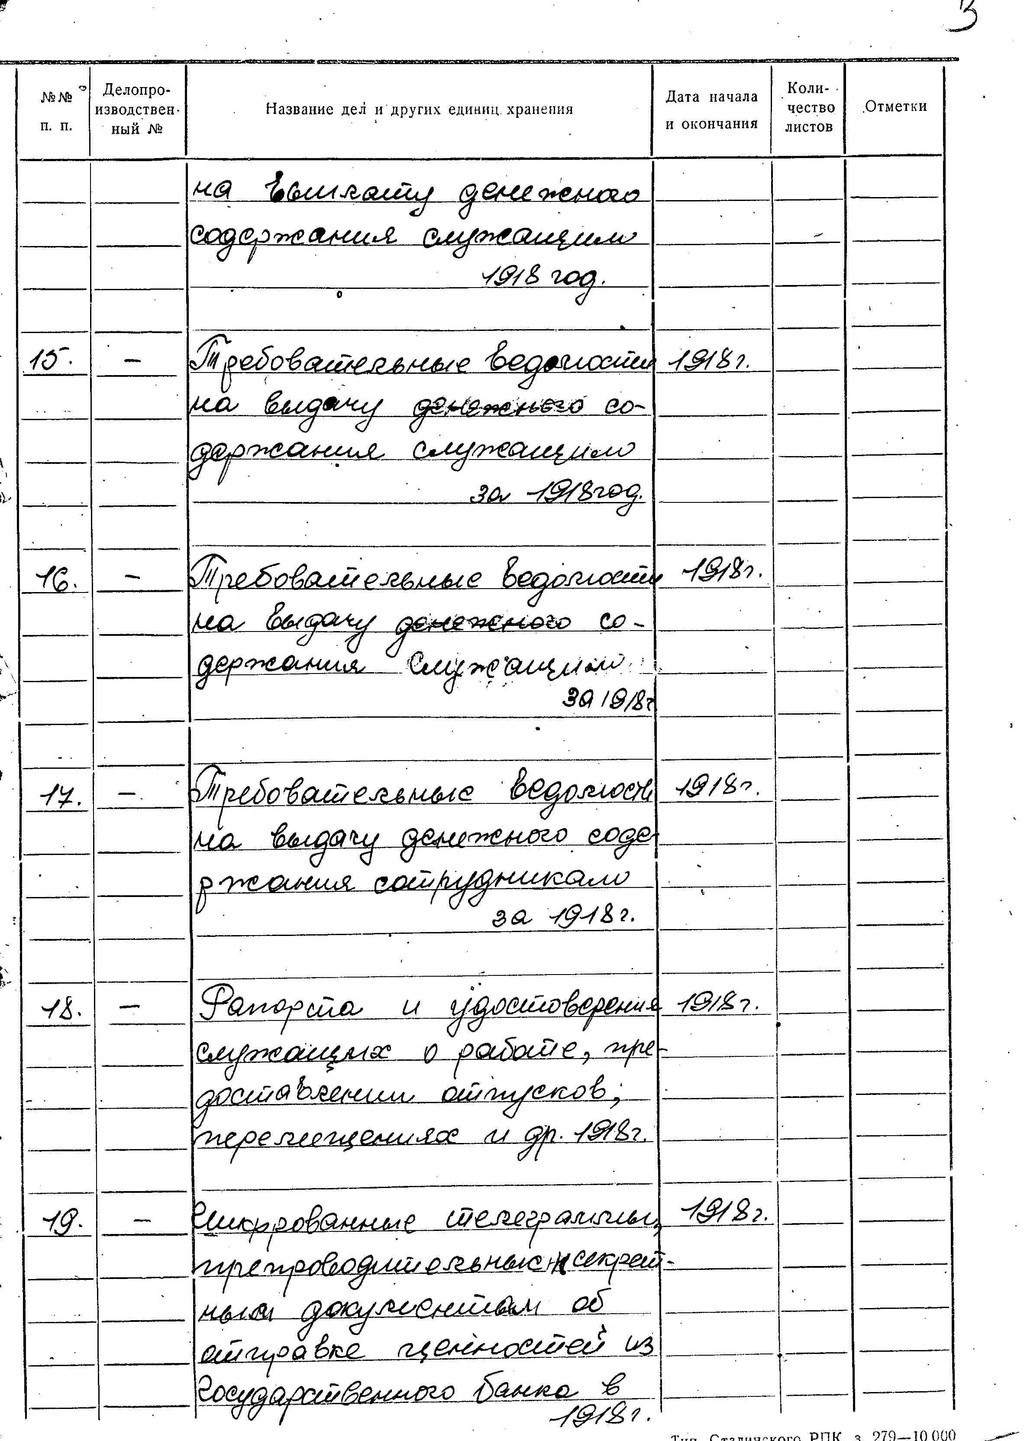 3
№№ п. п.
Делопро-
изводствен-
ный №
Название дел и других единиц хранения
Дата начала
и окончания
Коли-
чество
листов
Отметки
на выплату денежного
содержания служащим
1918 год.
15. – Требовательные ведомости 1918г.
на выдачу денежного со-
держания служащим
за 1918 год.
16. – Требовательные ведомости 1918г.
на выдачу денежного со-
держания служащим
за 1918г
17. – Требовательные ведомости 1918г.
на выдачу денежного соде
ржания сотрудникам
за 1918г.
18. – Рапорта и удостоверения 1918г.
служащих о работе, пре-
доставлении отпусков,
перемещениях и др. 1918г.
19. – Шифрованные телеграммы, 1918г.
препроводительные к секрет-
ным документам об
отправке ценностей из
Государственного банка в
1918г.
Тип. Сталинского РПК з. 279—10 000